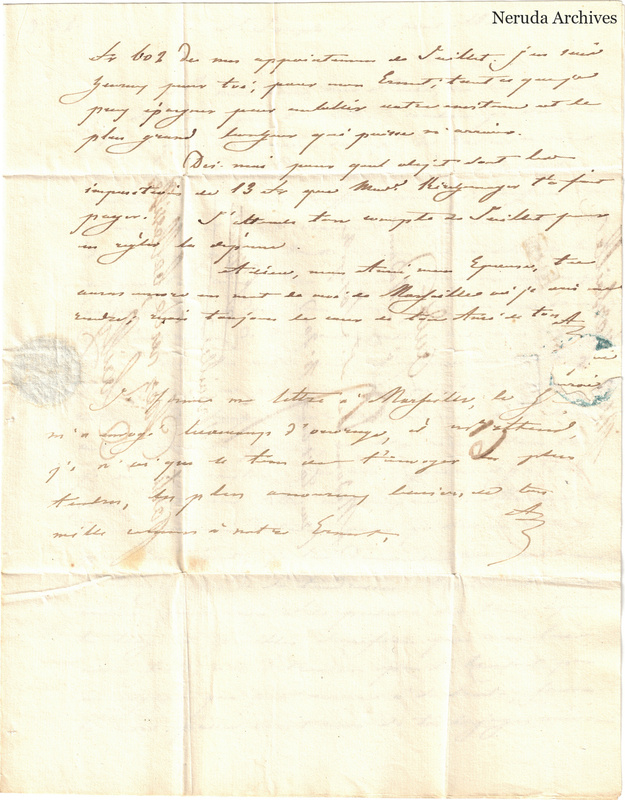 Neruda Archives
fr 602 de mes appointemens de Juillet. j'en suis
pour toi, pour mon Ernest, tout ce que je
puis épargner pour embellir notre existence est le
plus grand bonheur qui puisse m'arriver.
Dis moi pour quel objet sont les
impositions de 13 fr que Made. t'a fait
payer. J'attends ton compte de Juillet pour
en régler la dépense.
Adieu, mon Amie, mon Epouse, tu
auras encore un mot de moi de Marseille où je vais me
rendre, crois toujours le cœur de ton Ami de ton A
Je ferme ma lettre à Marseille, le
m'a envoyé beaucoup d'ouvrage, il m'attend,
je n'ai que le tems de t'envoyer les plus
tendres, les plus amoureux baisers de ton
A
mille caresses à notre Ernest.